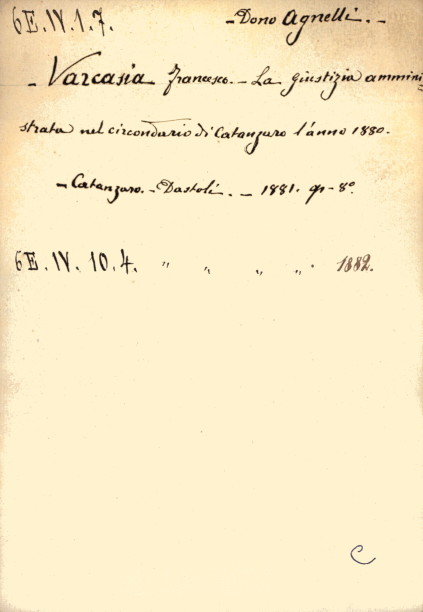 6E.IV.1.7. - Dono Agnelli. -
- Varcasia Francesco. - La giustizia ammini
strata nel circondario di Catanzaro l'anno 1880.
- Catanzaro. - Dastoli. - 1881. in - 8°
6E.IV.10.4. " " " " . 1882.
C